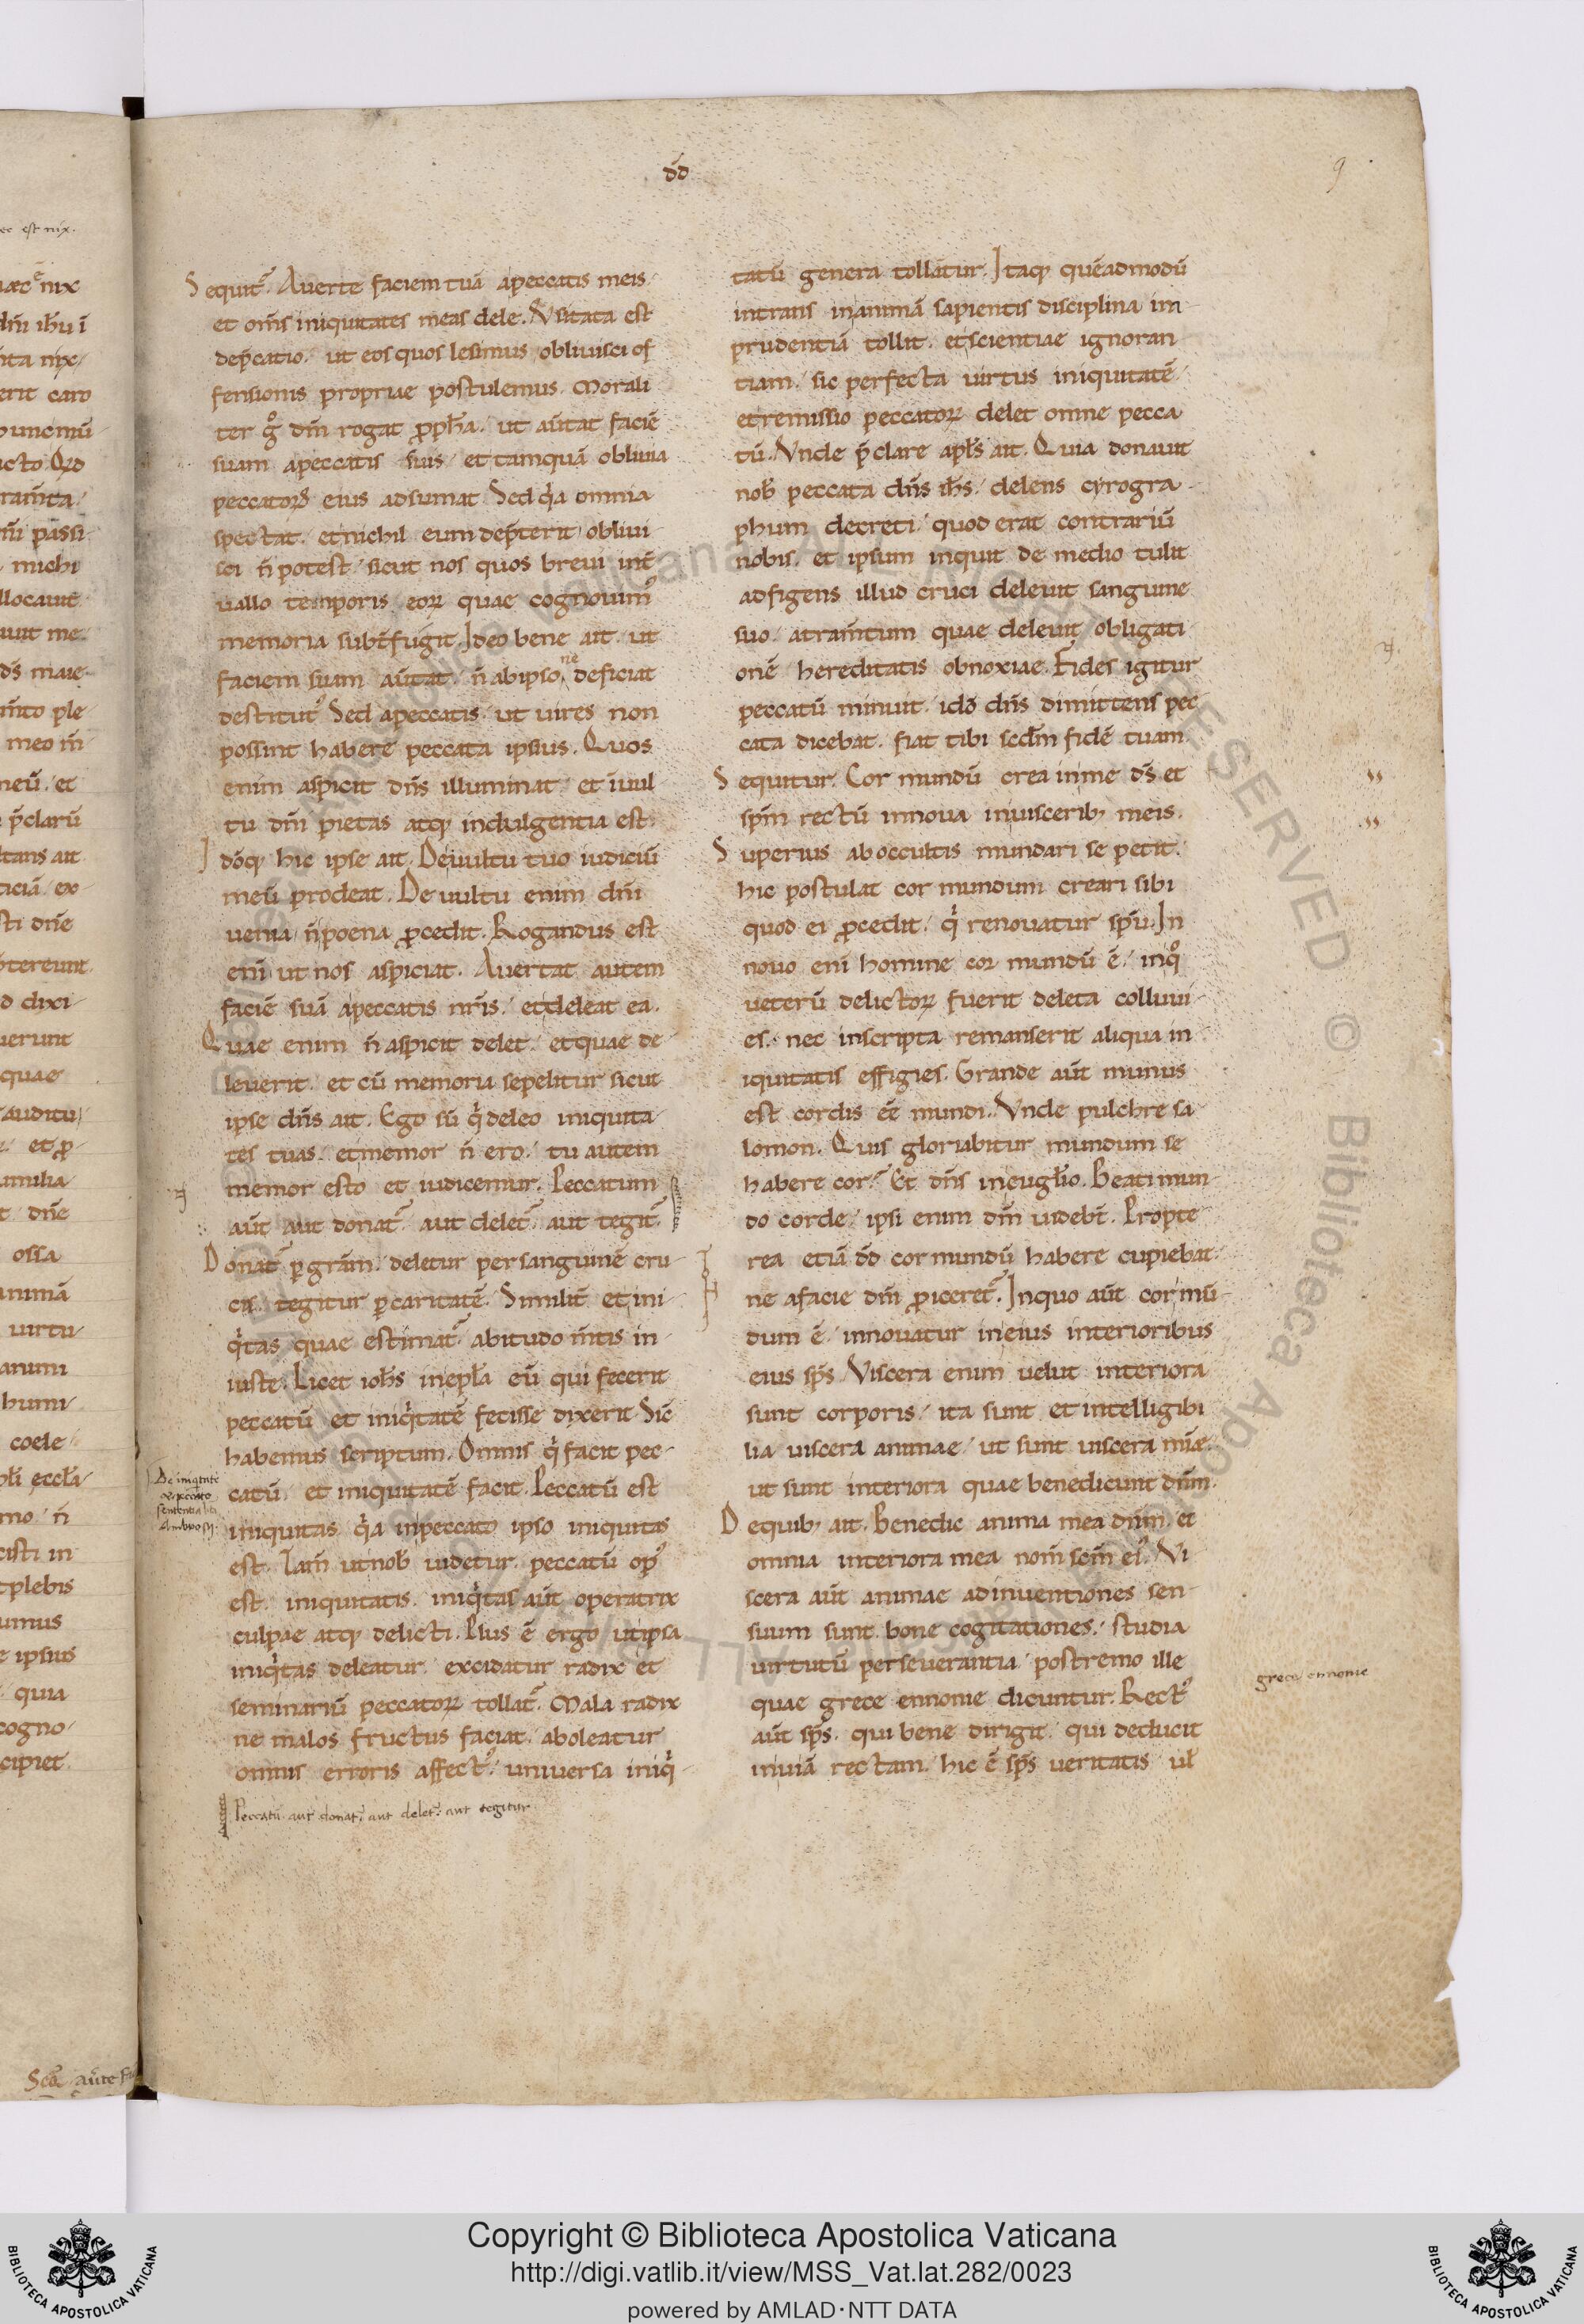 dd̄
9
Sequit᷒. Auerte faciem tuā apeccatis meis
et om̄s iniquitates meas dele. Vsitata est
dep̄catio. ut eos quos lesimus obliuisci of
fensionis propriae postulemus. Morali
ter gͦ dm̄ rogat ꝓph̄a. ut aūtat faciē
suam apeccatis suis. et tamquā obliuia
peccatorꝝ eius adsumat. Sed qͥa omnia
spectat. et nichil eum dep̄terit obliui
sci n̄ potest. sicut nos quos breui int̄
uallo temporis eorꝝ quae cognouim᷒
memoria subt̄fugit. Ideo bene ait. ut
faciem suam aūtat. n̄ abipso ne deficiat
destitut᷒. Sed apeccatis. ut uires non
possint habere peccata ipsius. Quos
enim aspicit dn̄s illuminat. et iuul
tu dm̄ pietas atq; indulgentia est.
Idōq; hic ipse ait. De uultu tuo iudiciū
meū prodeat. De uultu enim dn̄i
uenia. n̄ poena ꝓcedit. Rogandus est
eni ut nos aspiciat. Auertat autem
faciē suā apeccatis nr̄is. et deleat ea.
Quae enim n̄ aspicit delet. et quae de
leuerit. et cū memoria sepelitur sicut
ipse dn̄s ait. Ego sū qͥ deleo iniquita
tes tuas. et memor n̄ ero. tu autem
memor esto et iudicemur. Peccatum
aūt aut donat᷒. aut delet᷒. aut tegit᷒.
Donat᷒ ꝑ grām. deletur per sanguinē cru
cis. tegitur ꝑ caritatē. Similit̄ et ini
qͥtas quae estimat᷒ abitudo m̄tis in
iuste. Licet ioh̄s in epl̄a eū qui fecerit
peccatū et iniqͥtatē fecisse dixerit. Sic
habemus scriptum. Omnis qͥ facit pec
catū. et iniquitatē facit. Peccatū est
iniquitas. qͥa inpeccato ipso iniquitas
est. Tam̄ ut nob̄ uidetur. peccatū op᷒
est iniquitatis. iniqͥtas aūt operatrix
culpae atq; delicti. Plus ē ergo ut ipsa
iniqͥtas deleatur. excidatur radix et
seminariū peccatorꝝ tollat᷒. Mala radix
ne malos fructus faciat. aboleatur
omnis erroris affect᷒. uniuersa iniqͥ
De iniqͥtate
& peccato
sententia
Ambrosij.
Peccatū aut donat᷒. aut delet᷒. aut tegitur
tatū genera tollatur. Itaq; quēadmodū
intrans inanimā sapientis disciplina im
prudentiā tollit. et scientiae ignoran
tiam. sic perfecta uirtus iniquitatē.
et remissio peccatorꝝ delet omne pecca
tū. Vnde p̄clare apl̄s ait. Quia donauit
nob̄ peccata dn̄s ih̄s. delens cyrogra
phum decreti. quod erat contrariū
nobis. et ipsum inquit de medio tulit
adfigens illud cruci. deleuit sanguine
suo. atram̄tum quae deleuit obligati
onē hereditatis obnoxiae. Fides igitur
peccatū minuit. idō dn̄s dimittens pec
cata dicebat. fiat tibi scdm̄ fidē tuam.
Sequitur. Cor mundū crea in me dš et
spm̄ rectū innoua inuisceribꝫ meis.
Superius ab occultis mundari se petit.
hic postulat cor mundum creari sibi
quod ei ꝓcedit. qͥ renouatur spū. In
nouo eni homine cor mundū ē. inqͦ
ueterū delictorꝝ fuerit deleta colluui
es. nec inscripta remanserit aliqua in
iquitatis effigies. Grande aūt munus
est cordis ēē mundi. Vnde pulchre sa
lomon. Quis gloriabitur mundum se
habere cor? Et dn̄s in eugl̄io. Beati mun
do corde. ipsi enim dm̄ uidebt̄. Propte
rea etiā dd̄ cor mundū habere cupiebat.
ne afacie dm̄ ꝓiceret᷒. In quo aūt cor mū
dum ē. innouatur in eius interioribus
eius sps̄. Viscera enim uelut interiora
sunt corporis. ita sunt et intelligibi
lia uiscera animae. ut sunt uiscera mīae.
ut sunt interiora quae benedicunt dnm̄.
De quibꝫ ait. Benedic anima mea dnm̄. et
omnia interiora mea nom̄ scm̄ ei᷒. Vi
scera aūt animae adinuentiones sen
suum sunt. bone cogitationes. studia
uirtutū perseuerantia. postremo ille
quae grece ennoiae dicuntur. Rect᷒
aūt sps̄. qui bene dirigit. qui deducit
inuiā rectam. hic ē sps̄ ueritatis ul̄
grece ennoie
Copyright © Biblioteca Apostolica Vaticana
http://digi.vatlib.it/view/MSS_Vat.lat.282/0023
powered by AMLAD·NTT DATA
BIBLIOTECA APOSTOLICA VATICANA
BIBLIOTECA APOSTOLICA VATICANA